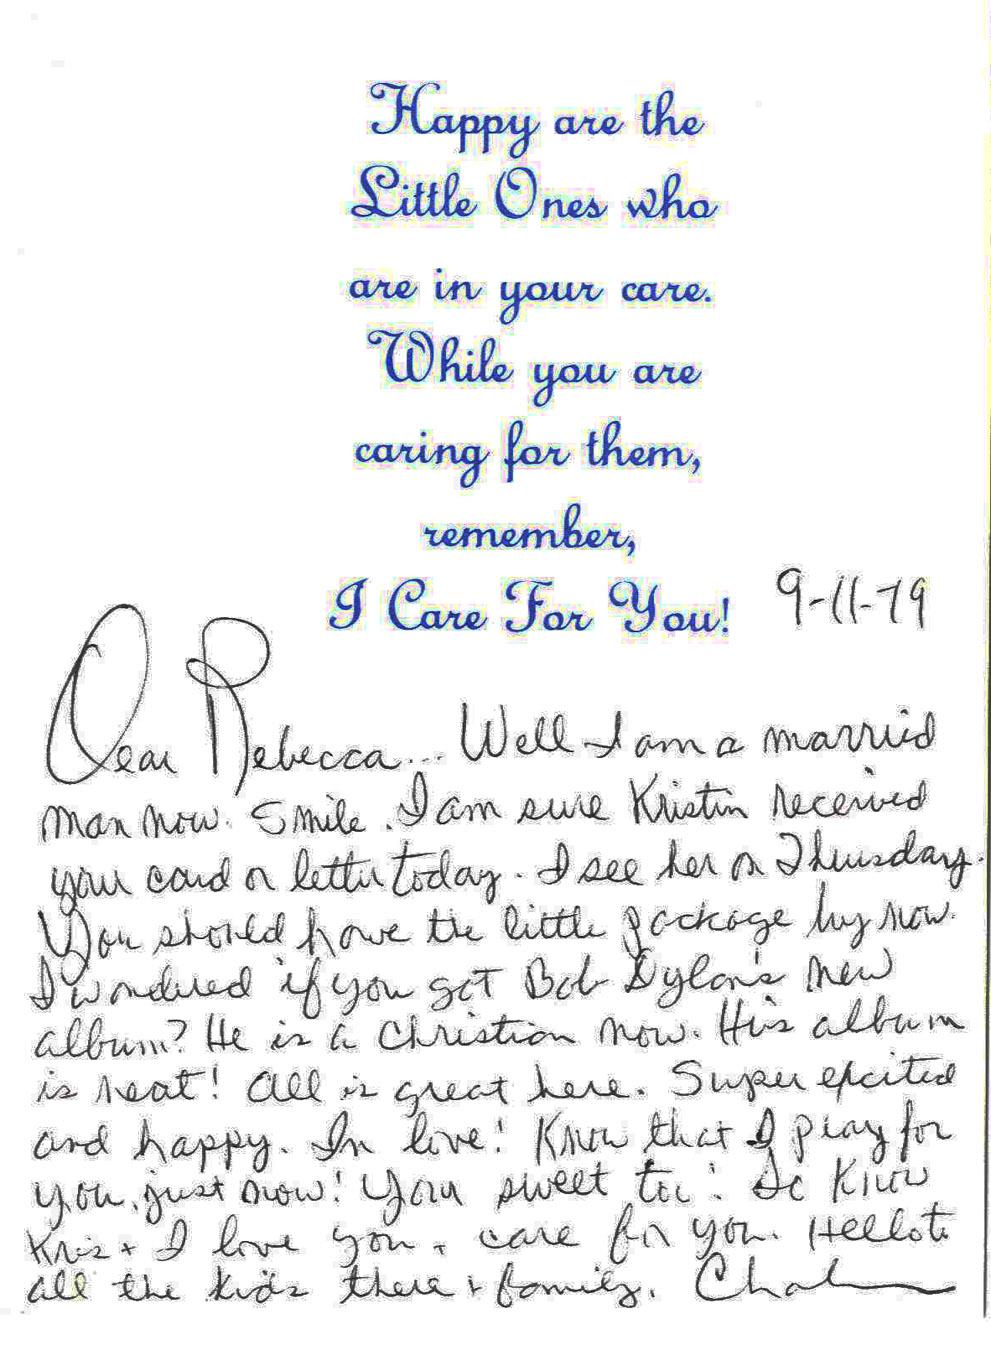 Happy are the
Little Ones who
are in your care.
While you are
caring for them,
remember,
I Care For You!
9-11-79
Dear Rebecca... Well I am a married
man now. Smile. I am sure Kristin received
your card or letter today. I see her on Thursday.
You should have the little package by now.
I wondered if you got Bob Dylan's new
album? He is a Christian now. His album
is neat! All is great here. Super excited
and happy. In love! Know that I pray for
you, just now! Your sweet too! Do know
Kris + I love you + care for you. Hello to
all the kids there + family.